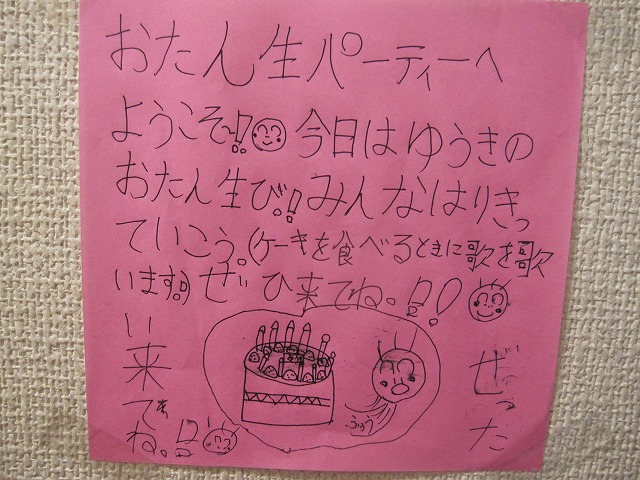 おたん生パーティーへ
ようこそ~!! 今日はゆうきの
おたん生び!!みんなはりきっ
ていこう。(ケーキを食べるときに歌を歌
います!!)ぜひ来てね。!!
ぜった
い来てね。!!
ふぅっ